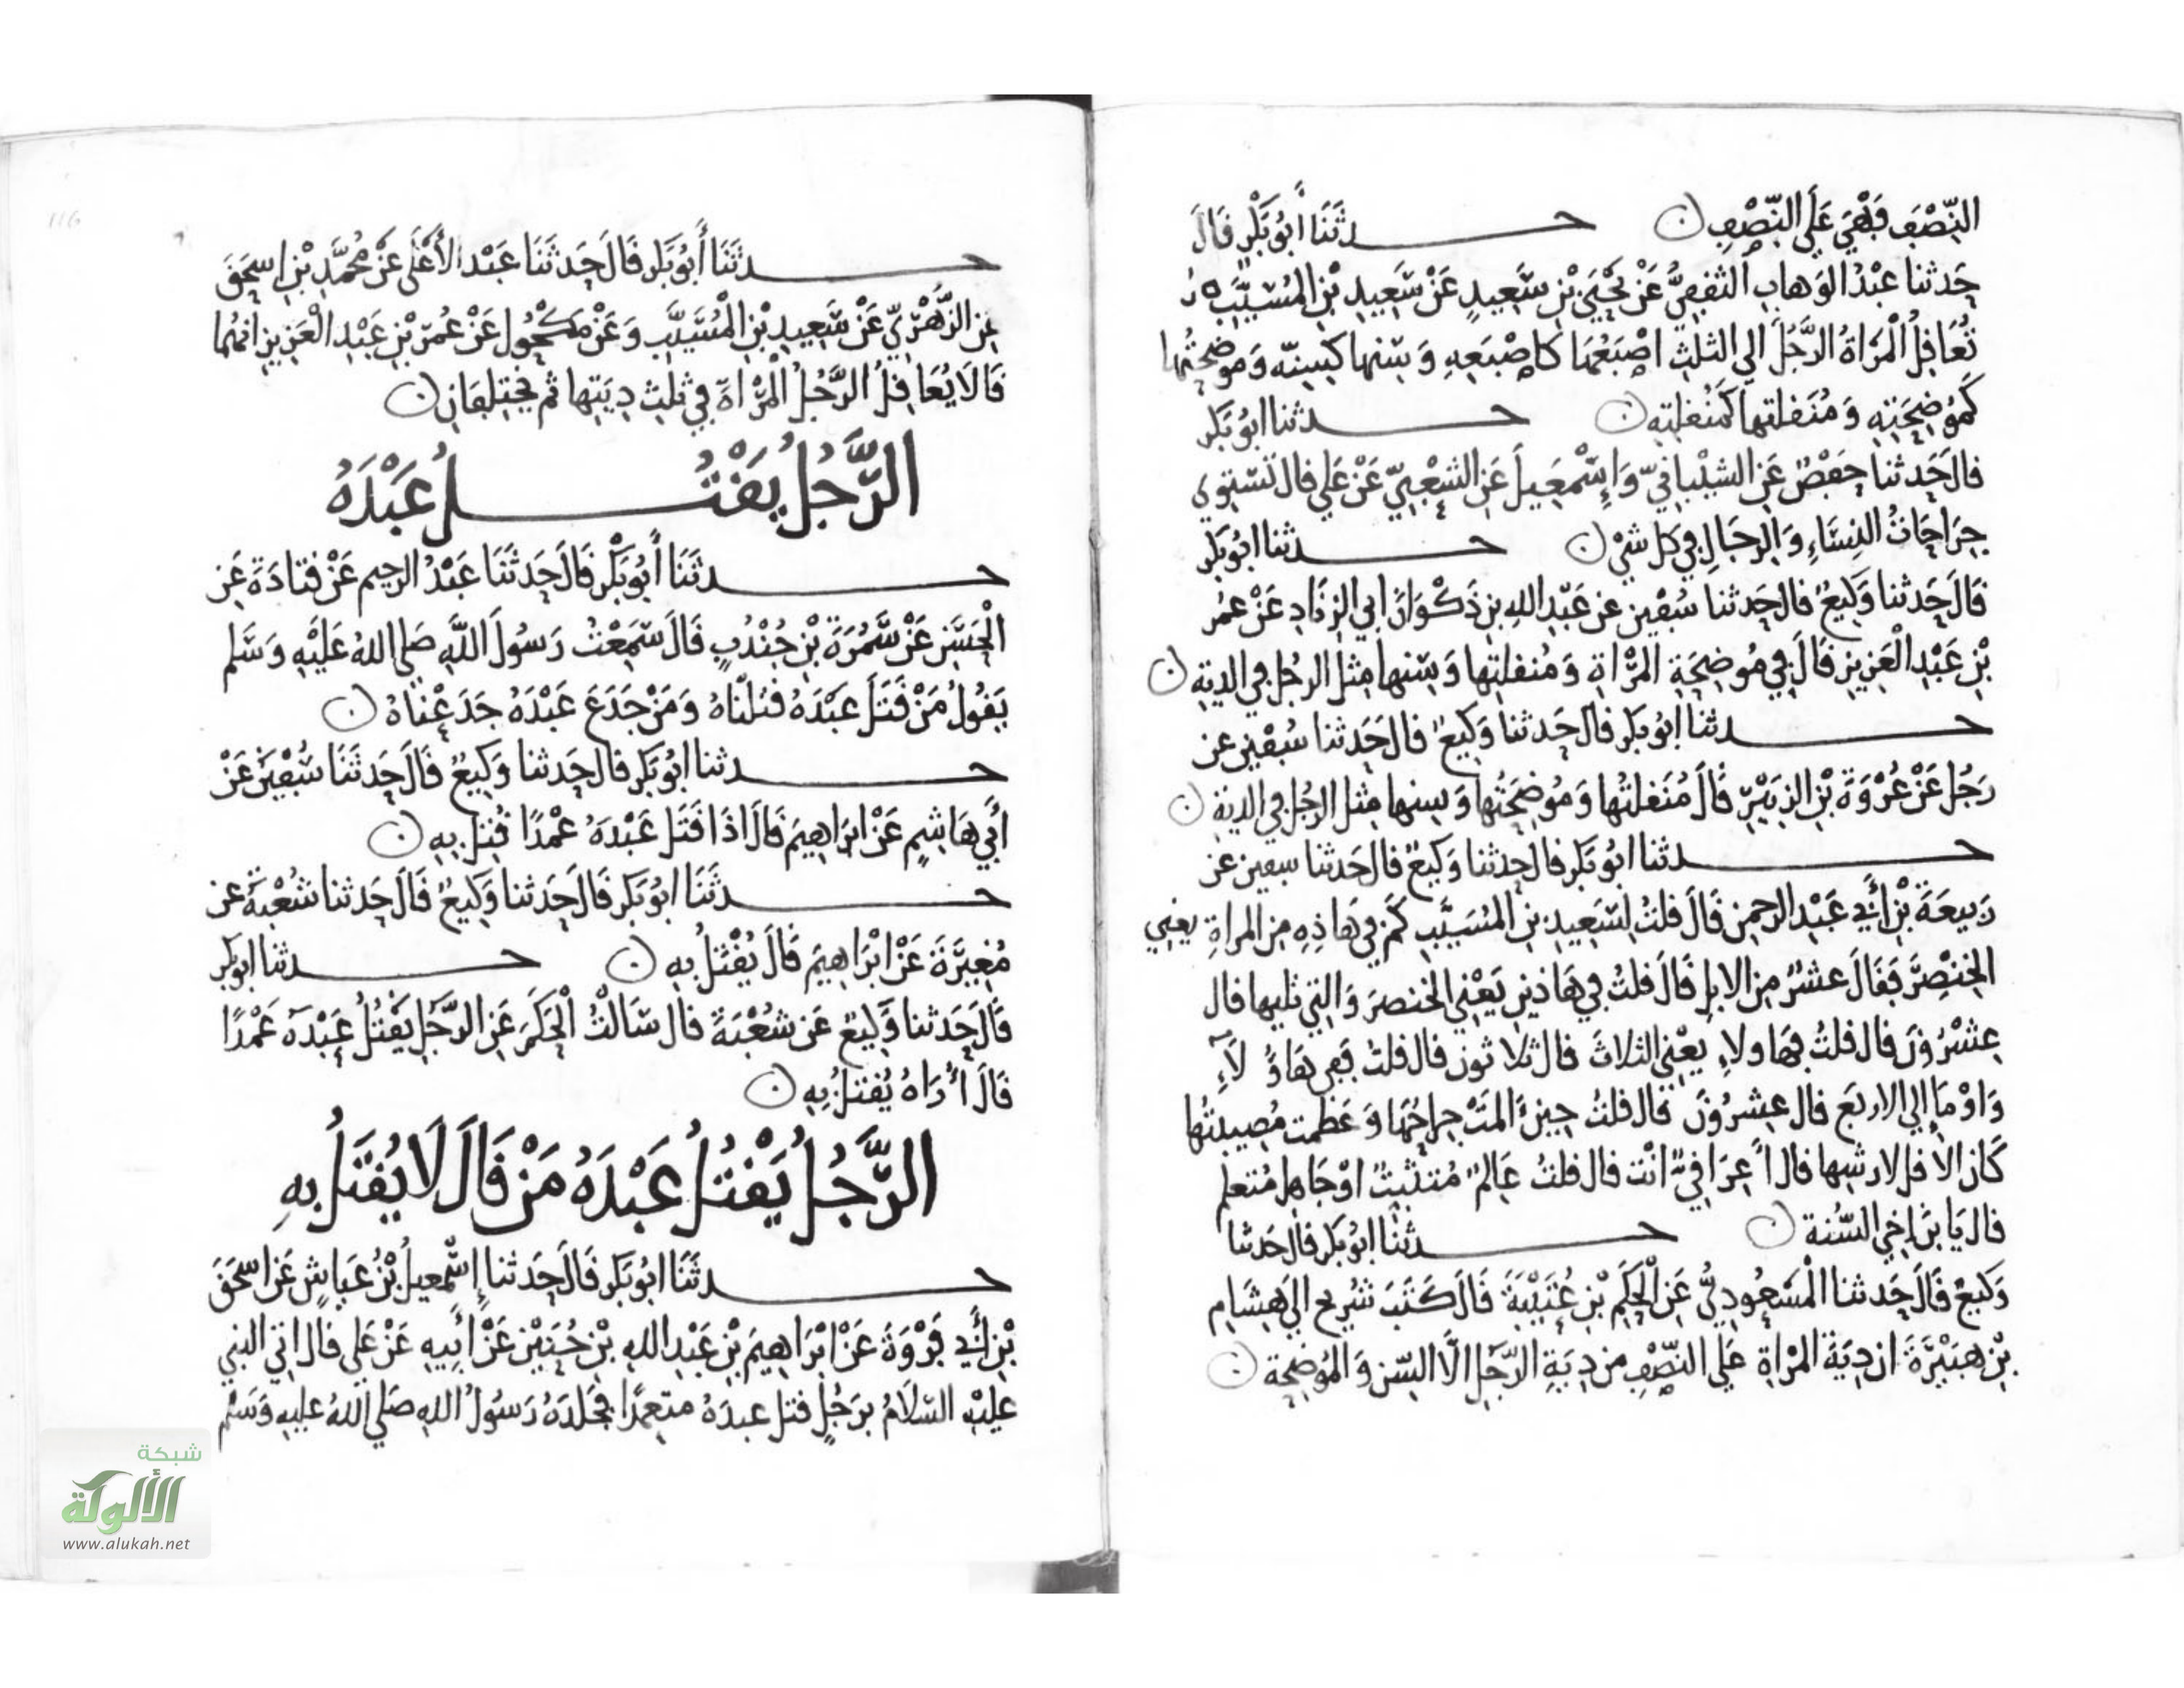 النِّصْفِ فَهْيَ عَلَى النِّصْفِ ۞ حــدثَنَا أَبُو بَكْرٍ قَالَ
حَدثنا عَبْدُ الوَهابِ الثقفِيُّ عَنْ يَحْيَى بْنِ سَعِيدٍ عَنْ سَعِيدِ بْنِ المُسَيَّبِ
تُعَاقِلُ الْمَرَاةُ الرَّجُلَ الى الثلثِ اصْبَعُهَا كاصْبَعِهِ وَسِنها كسِنِّه وَموضِحتُها
كَمُوضِحَتِهِ وَمُنَقلتها كمُنَقلتِهِ ۞ حــدثنا ابُو بَكر
قالَ حَدثنا حَفْصٌ عَنِ الشيْبانيِّ وَإِسْمَعِيلَ عَنِ الشعْبِيِّ عَنْ عَلي قال تَسْتوي
جِرَاحَاتُ النِسَاءِ وَالرجَالِ في كل شيْ ۞ حــدثنا ابُو بَكر
قَالَ حَدثنا وَكِيعٌ قال حَدثنا سُفْين عن عَبْدِ اللهِ بنِ ذَكْوَانَ ابي الزنَادِ عَنْ عمر
بْنِ عَبْدِ الْعَزِيزِ قَالَ فِي مُوضِحَةِ المَرْاةِ وَمُنقلتِها وَسِنها مِثلُ الرجُلِ في الديةِ ۞
حــدثنا ابُو بَكر قال حَدثنا وَكِيعٌ قال حَدثنا سُفْين عن
رَجُل عَنْ عُرْوَةَ بْنِ الزبَيْرِ قَالَ مُنَقلتُها وَمُوضِحَتُها وَسِنها مِثل الرجُل في الديةِ ۞
حــدثنا ابُو بَكر قال حَدثنا وَكيعٌ قال حَدثنا سفين عن
رَبيعَةَ بْنِ أَبي عَبْدِ الرحمن قَالَ قلتُ لِسَعِيدِ بنِ المُسَيَّبِ كَمْ في هَاذِهِ مِن المراةِ يعْنِي
الخِنْصِرَ فقَالَ عشرٌ مِنَ الابِلِ قَالَ قلتُ فِي هَاذين يَعْني الخنصرَ وَالتِي تليها قال
عِشْرُونَ قال قلتُ فهَاولاءِ يعْنِي الثلاثَ قال ثلاثون قال قلتُ فِفي هَاؤلاءِ
وَاوْمَا إلي الاربَع قال عِشرُونَ قَال قلتُ حِين المَتْ جِراحُهَا وَعَظمت مُصِيبَتُها
كَان الاقل لارشِها قال أعِرَاقِيٌّ انْت قال قلتُ عَالِمٌ مُتثبتٌ اوْ جَاهِل مُتعلم
قال يَا بْنَ اخِي السُّنة ۞ حــدثَنا ابُو بَكر قال حَدثنا
وَكيعٌ قَالَ حَدثنا الْمَسْعُودِيُّ عَنِ الْحَكَمِ بْنِ عُتَيْبَةَ قَالَ كَتَبَ شُرَيح الَي هِشَامِ
بْنِ هبَيْرَةَ ان دِيَةَ المَرْاةِ عَلي النّصْفِ من دِيَةِ الرّجُلِ الَّا السّن وَالمُوضِحة ۞
حــدثَنَا أَبُو بَكر قَالَ حَدثَنَا عَبْد الأَعْلَى عَنْ مُحمَّدِ بْنِ اسحَقَ
عَنِ الزُّهْرِيِّ عَنْ سَعِيدِ بْنِ الْمُسَيَّبِ وَعَنْ مَكْحُولٍ عَنْ عُمَرَ بْنِ عَبْدِ الْعَزِيزِ انهُما
قَالا يُعَاقِلُ الرَّجُلُ الْمَرْاةَ فِي ثلثِ دِيَتِها ثم يَختلِفَانِ ۞
الرَّجُلُ يَقْتُــلُ عَبْدَهُ
حــدثَنَا أَبُو بَكْرٍ قَالَ حَدثَنَا عَبْدُ الرحِيم عَنْ قتادَةَ عَنِ
الْحَسَنِ عَنْ سَمُرَةَ بْنِ جُنْدُبٍ قَالَ سَمِعْتُ رَسُولَ اللَّهِ صَلى اللهُ عَلَيْهِ وَسَلم
يَقُولُ مَنْ قَتَلَ عَبْدَهُ قتَلنَاهُ وَمَنْ جَدَعَ عَبْدَهُ جَدَعْنَاهُ ۞
حــدثنا ابُو بَكر قال حَدثنا وَكِيعٌ قَالَ حَدثَنَا سُفْيَن عَنْ
أَبِي هَاشِمٍ عَنْ ابرَاهِيمَ قَالَ اذَا قَتَل عَبْدَهُ عمْدًا قُتِل بِهِ ۞
حــدثَنَا ابُو بَكر قَالَ حَدثنا وَكِيعٌ قَالَ حَدثنا شُعْبَة عن
مُغِيرَةَ عَنْ ابْرَاهِيمَ قَالَ يُقْتَلُ بِهِ ۞ حــدثنا ابو بَكر
قَالَ حَدثنا وَكِيعٌ عَن شُعْبَةَ قال سَالتُ الْحَكَمَ عَنِ الرَّجُلِ يَقْتُلُ عَبْدَهُ عَمْدًا
قَالَ أرَاهُ يُقتلُ بِهِ ۞
الرَّجُلُ يَقْتُلُ عَبْدَهُ مَنْ قَالَ لَا يُقتَلُ بِهِ
حــدثَنَا ابُو بَكر قَالَ حَدثنا إِسْمعيلُ بْنُ عَيَاشٍ عَن اسحَقَ
بْنِ أَبي فَرْوَةَ عَنْ ابْرَاهِيمَ بْنِ عَبْدِ اللهِ بْنِ حُنَيْنٍ عَنْ أَبِيهِ عَنْ عَلي قال اتي النبي
عليهِ السّلَامُ برَجُلٍ قتل عبدَهُ متعمّدًا فجَلدَهُ رَسُولُ اللهِ صَلي اللهُ عليهِ وَسَلم
116
شبكة
الألوكة
www.alukah.net